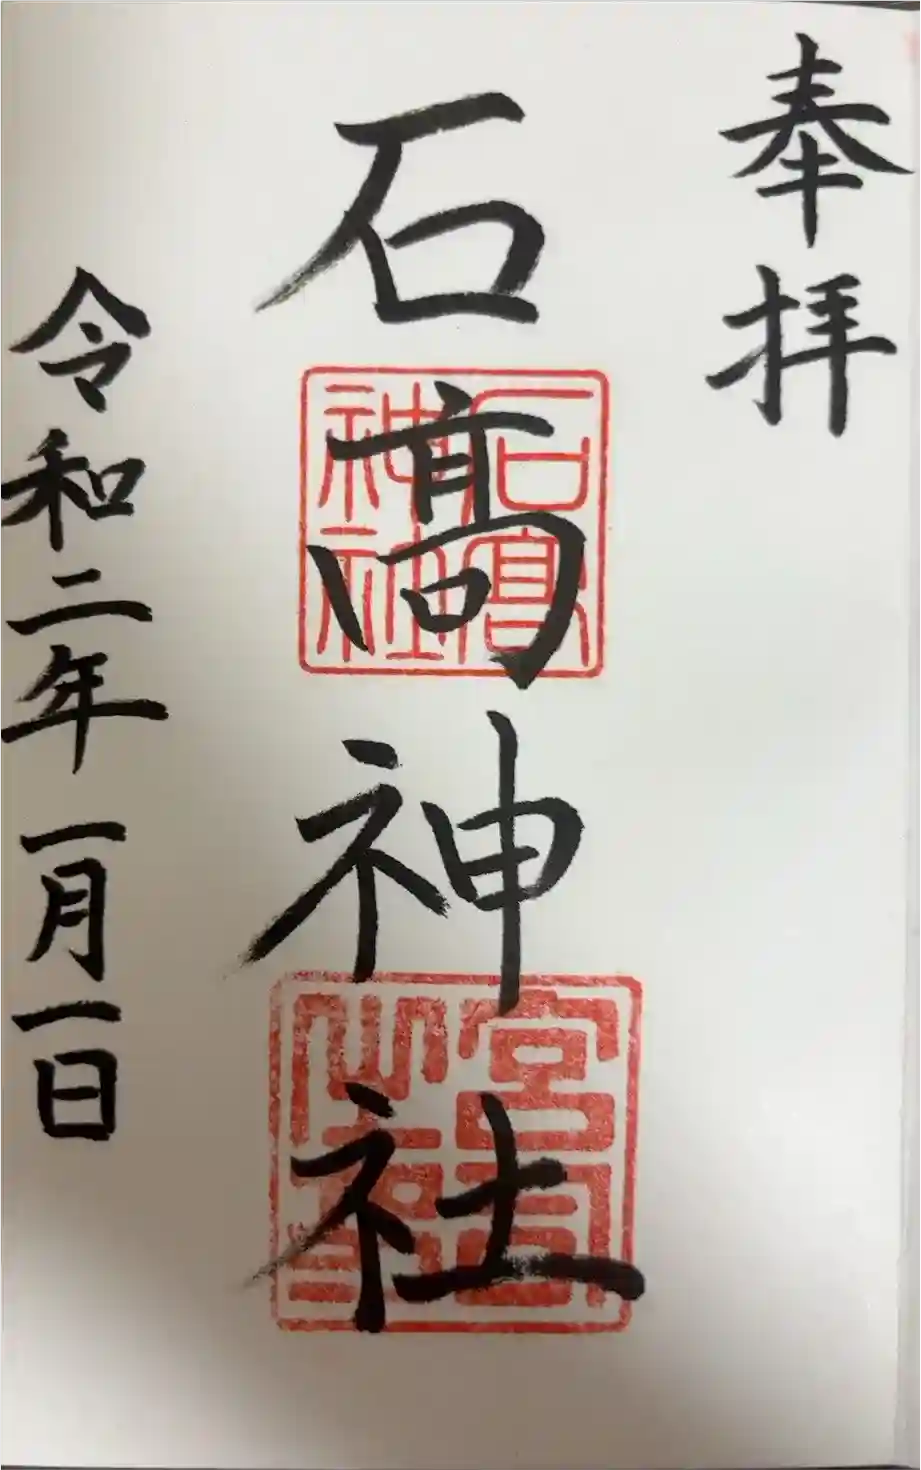 奉拝
石髙神社
石髙神社
宮司之印
令和二年一月一日